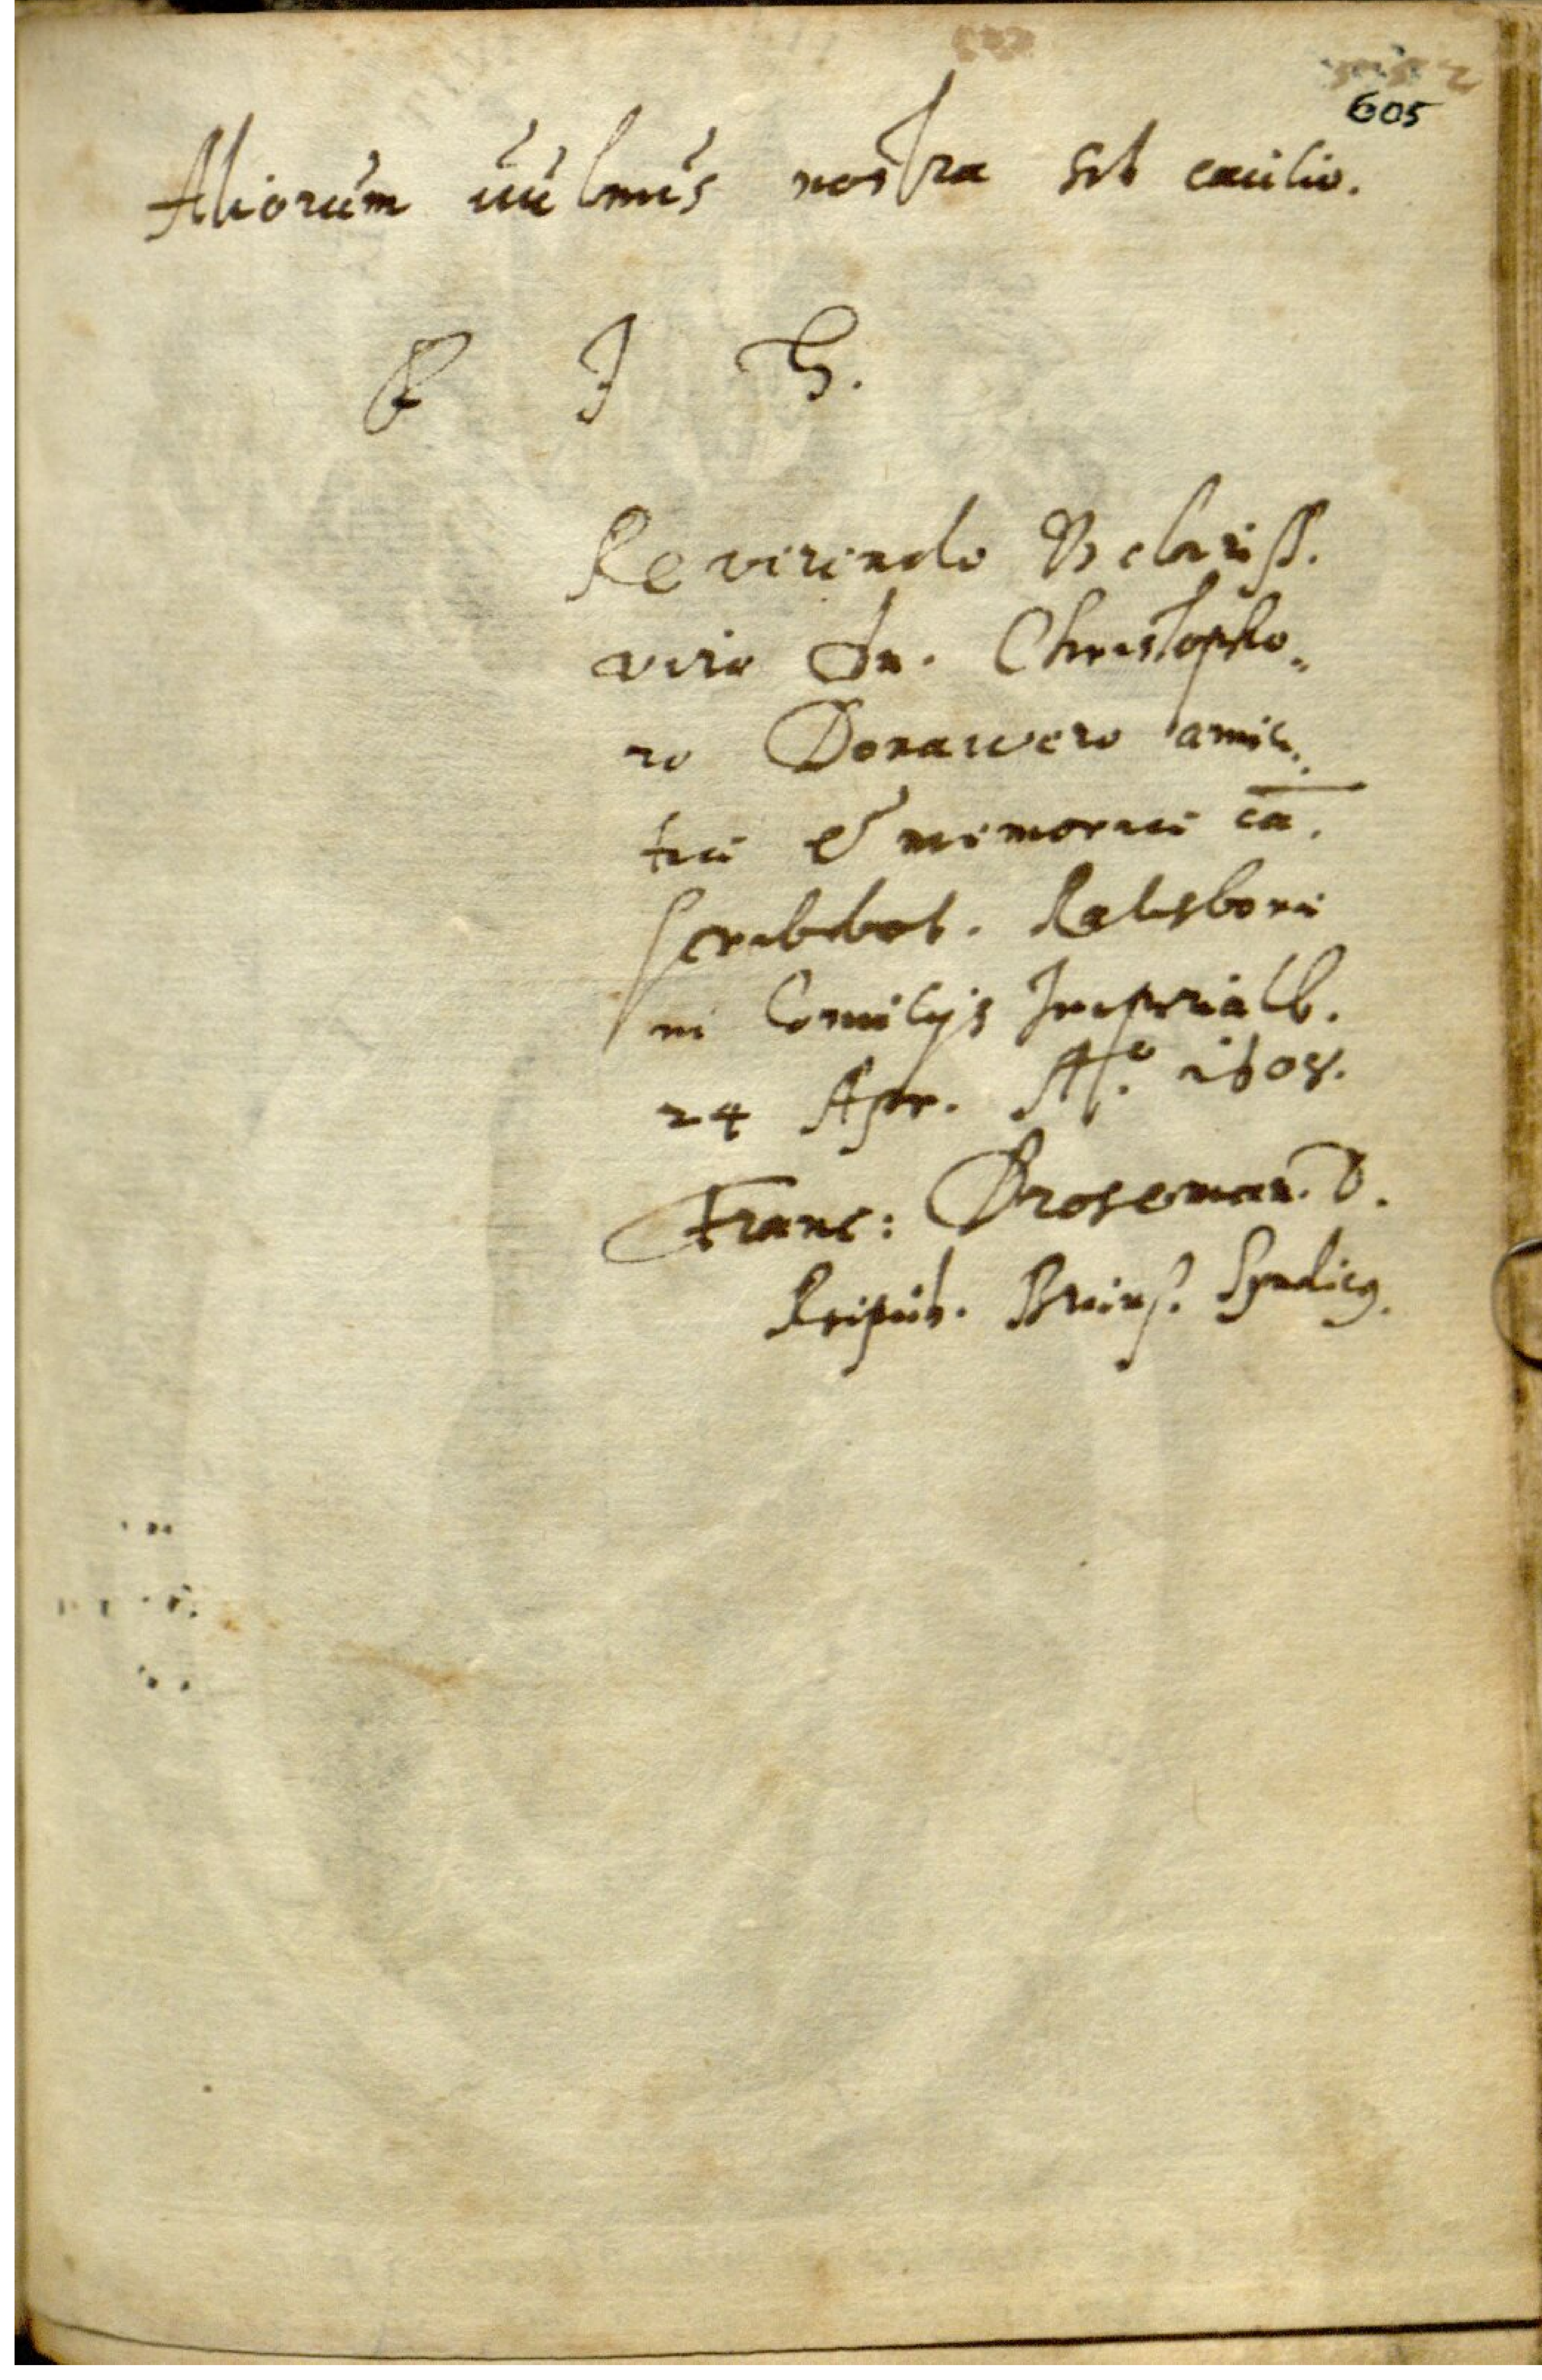 605
Aliorum uulnus nostra sit cautio.
R J G.
Reverendo & clariss.
viro Dn. Christopho„
ro Donawero amici„
tiæ & memoriæ cā.
scribebat. Ratisbonæ
in Comitijs Imperialb.
24 Apr. Aº. 1608.
Franc: Droseman. D.
Reipub. Brem. Syndicg.